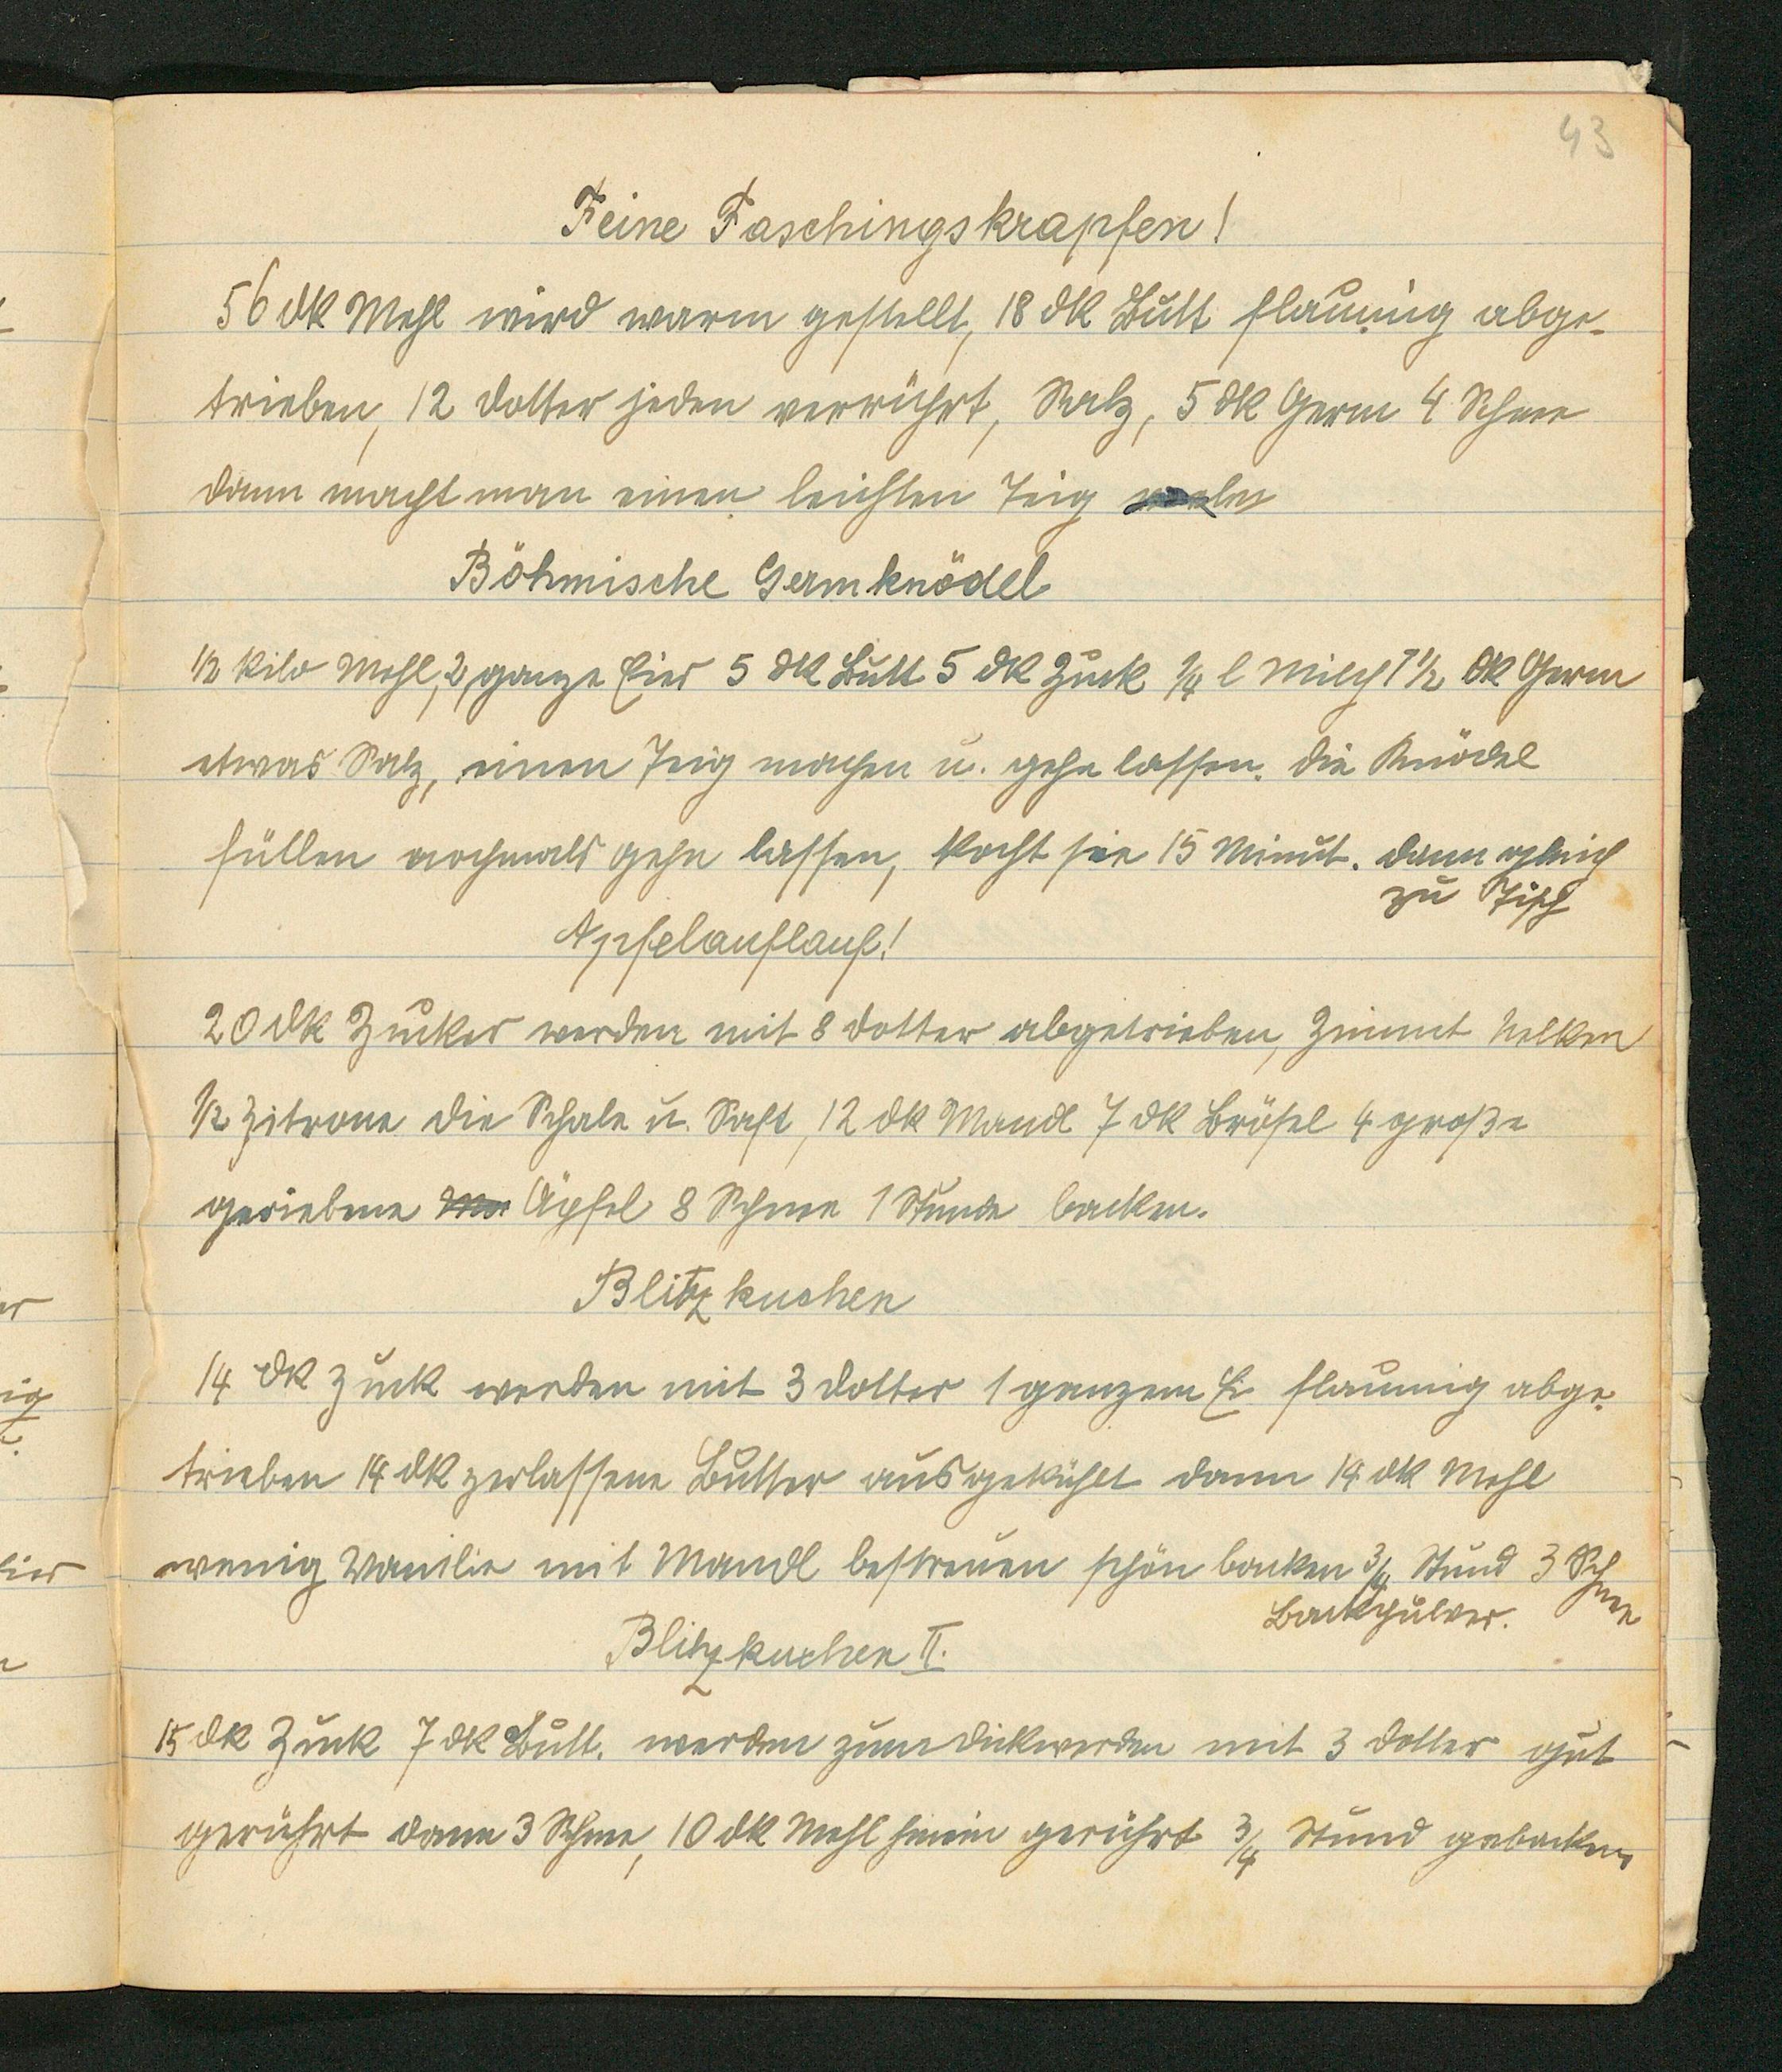 43
Feine Faschingskrapfen!
56 dk Mehl wird warm gestellt, 18 dk Butt flaumig abge-
trieben, 12 Dotter jeden verrührt, Salz, 5 dk Germ 4 Schnee
dann macht man einen leichten Teig
Böhmische Germknödel
1/2 Kilo Mehl, 2 ganze Eier 5 dk Butt 5 dk Zuck 1/4 l Milch 1 1/2 dk Germ
etwas Salz, einen Teig machen u. gehn lassen. Die Knödel
füllen nochmals gehn lassen, kocht sie 15 Minut. dann gleich
zu Tisch
Apfelauflauf!
20 dk Zucker werden mit 8 Dotter abgetrieben, Zimmt Nelken
1/2 Zitrone die Schale u. Saft, 12 dk Mandl 7 dk Brösel 4 große
geriebene Äpfel 8 Schnee 1 Stunde backen.
Blitzkuchen
14 dk Zuck werden mit 3 Dotter 1 ganzem Ei flaumig abge-
trieben 14 dk zerlassene Butter ausgekühlt dann 14 dk Mehl
wenig Vanilie mit Mandl bestreuen schön backen 3/4 Stund 3 Schnee
Backpulver.
Blitzkuchen II.
15 dk Zuck 7 dk Butt. werden zum dickwerden mit 3 Dotter gut
gerührt dann 3 Schnee, 10 dk Mehl hinein gerührt 3/4 Stund gebacken.
er
ig
Eier